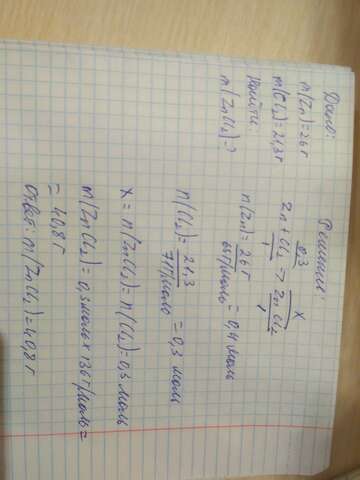 Дано:
m(Zn)=26 г
m(Cl₂)=21,3 г
Найти:
m(ZnCl₂)-?
Решение:
0,3 x
Zn + Cl₂ → ZnCl₂
1 1
n(Zn)= 26 г / 65 г/моль = 0,4 моль
n(Cl₂)= 21,3 / 71 г/моль = 0,3 моль
x = n(ZnCl₂)= n(Cl₂)=0,3 моль
m(ZnCl₂)= 0,3 моль × 136 г/моль =
= 40,8 г
Ответ: m(ZnCl₂)=40,8 г